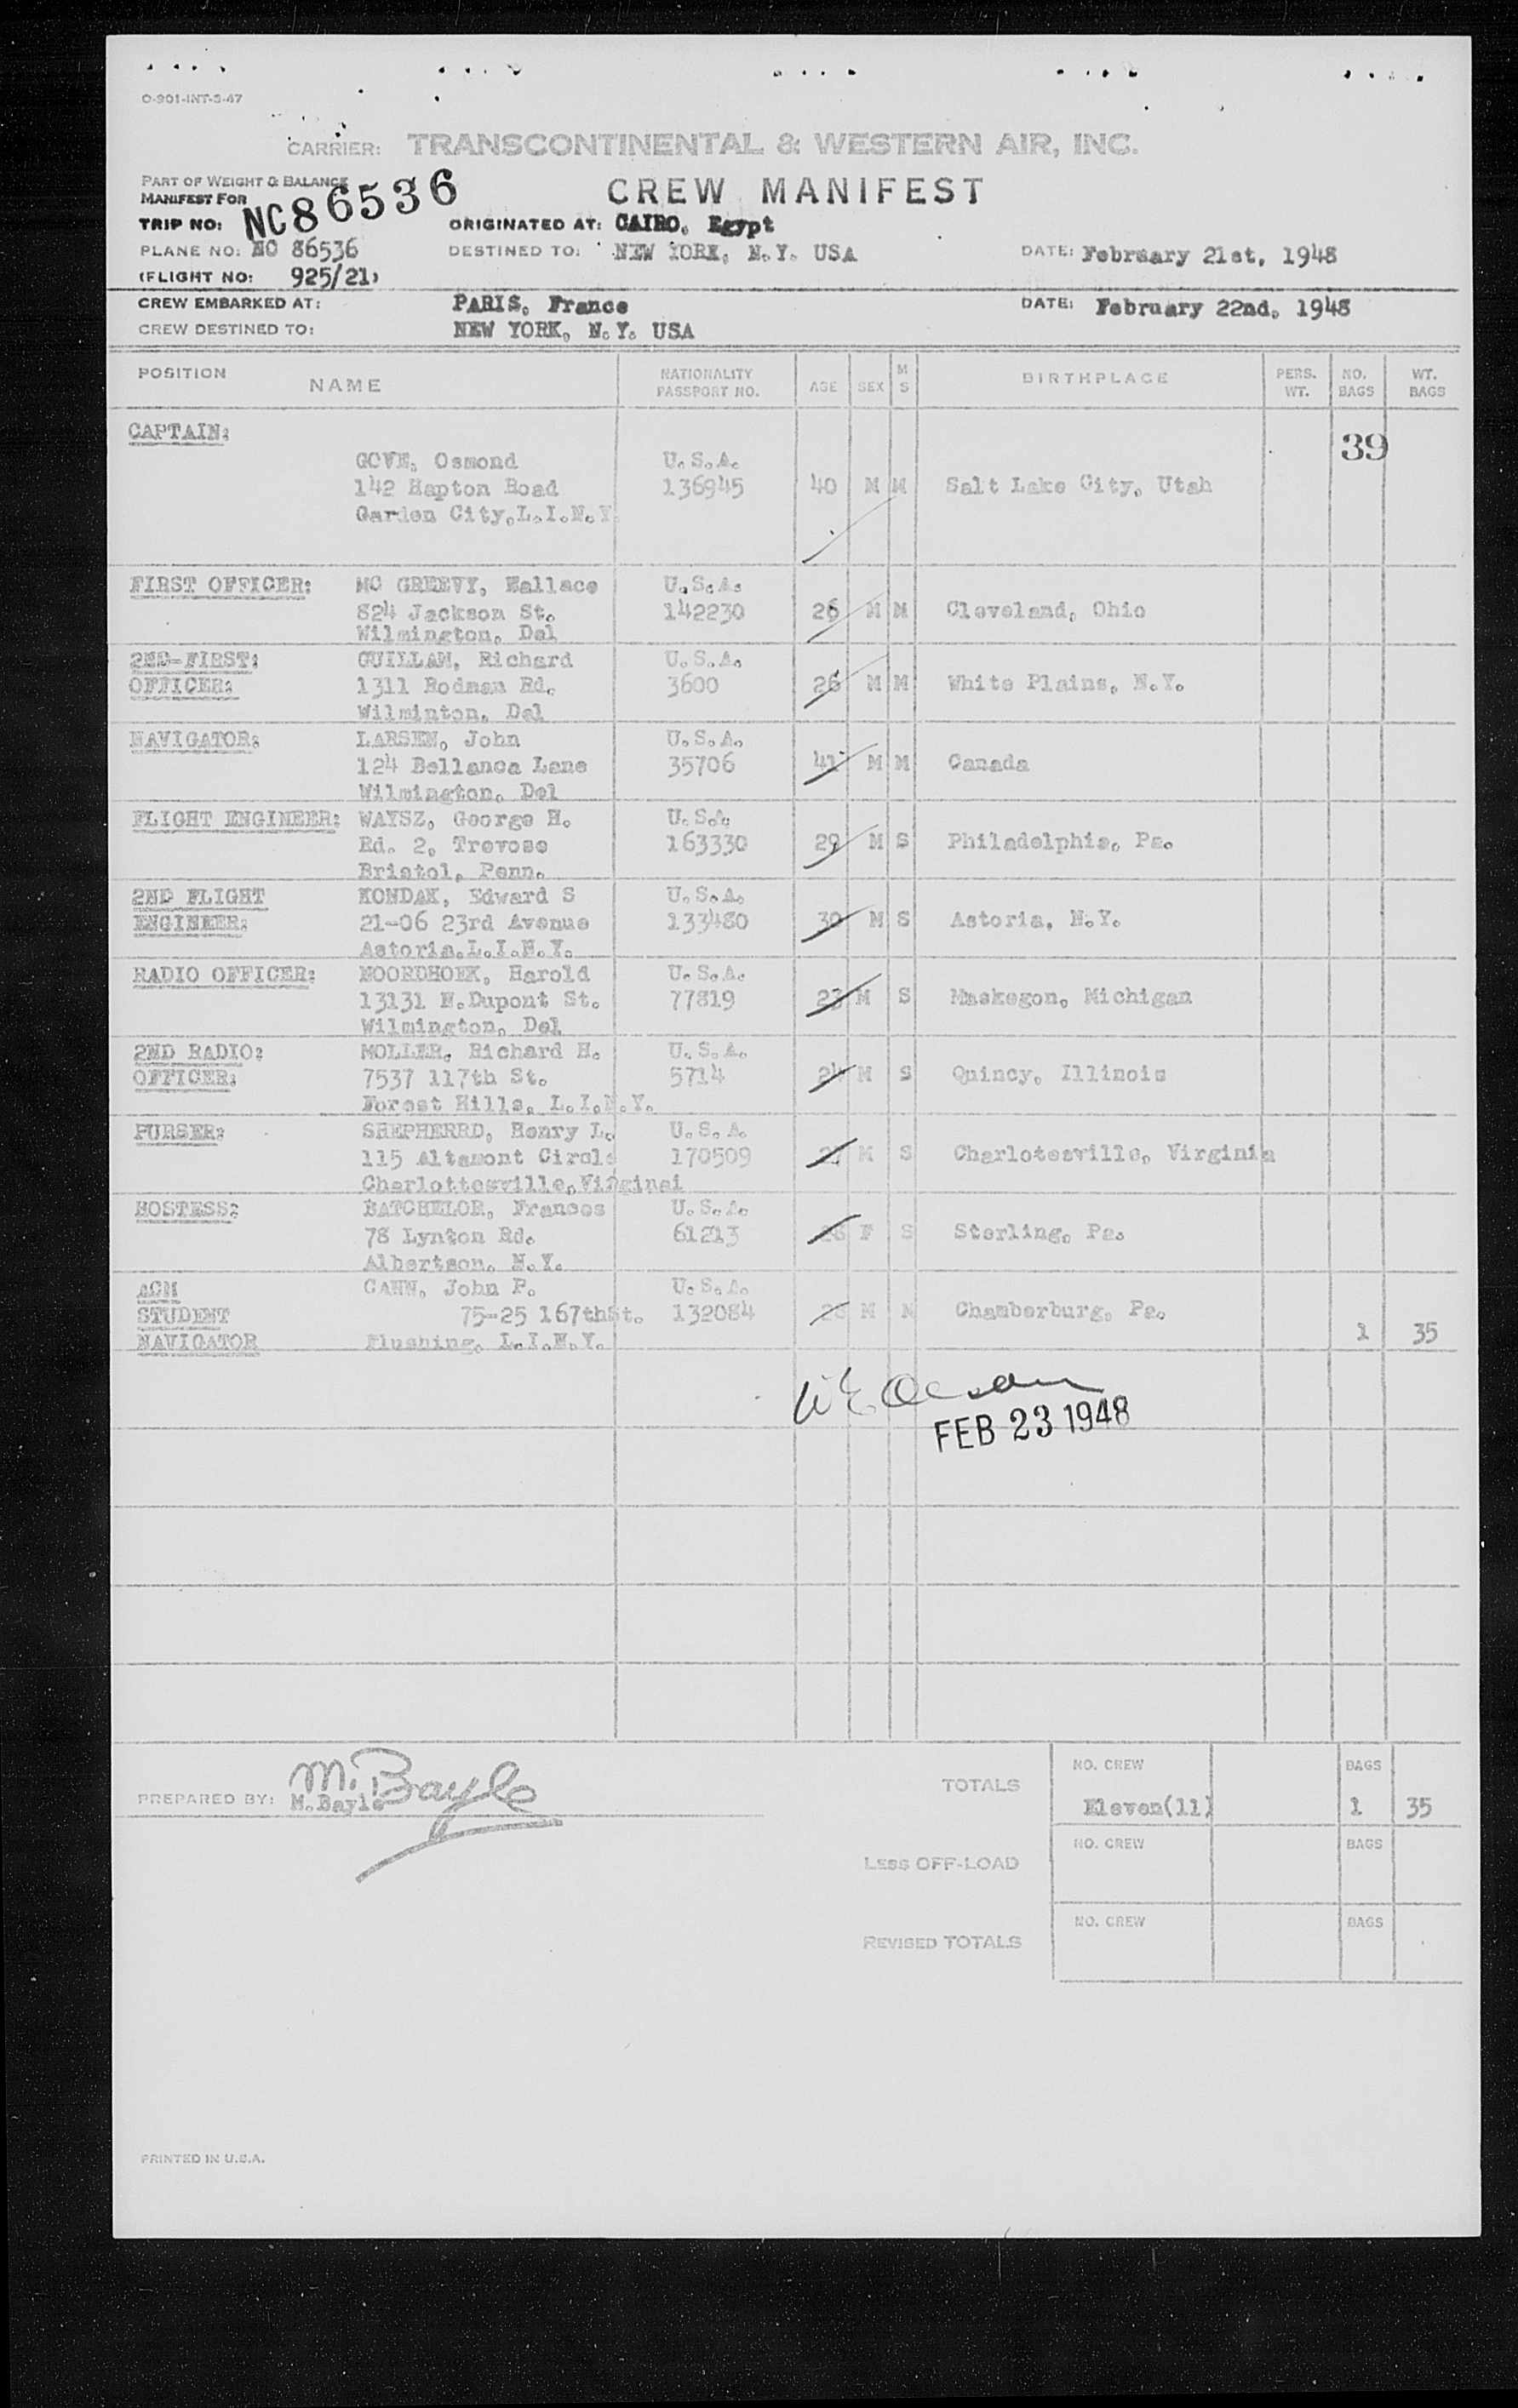 O-901-INT-3-47
CARRIER: TRANSCONTINENTAL & WESTERN AIR, INC.
PART OF WEIGHT & BALANCE
MANIFEST FOR
CREW MANIFEST
TRIP NO: NC86536 ORIGINATED AT: CAIRO, Egypt
PLANE NO: NC 86536 DESTINED TO: NEW YORK, N.Y. USA DATE: February 21st, 1948
(FLIGHT NO: 925/21)
CREW EMBARKED AT: PARIS, France DATE: February 22nd, 1948
CREW DESTINED TO: NEW YORK, N.Y. USA
POSITION NAME NATIONALITY PASSPORT NO. AGE SEX M S BIRTHPLACE PERS. WT. NO. BAGS WT. BAGS
CAPTAIN: 39
GOVE, Osmond U.S.A.
142 Hapton Road 136945 40 M M Salt Lake City, Utah
Garden City,L.I.N.Y.
FIRST OFFICER: MC GREEVY, Wallace U.S.A.
824 Jackson St. 142230 26 M M Cleveland, Ohio
Wilmington, Del
2ND-FIRST: GUILLAN, Richard U.S.A.
OFFICER: 1311 Rodman Rd. 3600 26 M M White Plains, N.Y.
Wilminton, Del
NAVIGATOR: LARSEN, John U.S.A.
124 Bellanca Lane 35706 41 M M Canada
Wilmington, Del
FLIGHT ENGINEER: WAYSZ, George H. U.S.A.
Rd. 2, Trevose 163330 29 M S Philadelphia, Pa.
Bristol, Penn.
2ND FLIGHT KONDAK, Edward S U.S.A.
ENGINEER: 21-06 23rd Avenue 133480 30 M S Astoria, N.Y.
Astoria,L.I.N.Y.
RADIO OFFICER: NOORDHOEK, Harold U.S.A.
13131 N.Dupont St. 77819 23 M S Maskegon, Michigan
Wilmington, Del
2ND RADIO: MOLLER, Richard H. U.S.A.
OFFICER: 7537 117th St. 5714 24 M S Quincy, Illinois
Forest Hills, L.I.N.Y.
PURSER: SHEPHERRD, Henry L. U.S.A.
115 Altamont Circle 170509 27 M S Charlotesville, Virginia
Charlottesville,Virginai
HOSTESS: BATCHELOR, Frances U.S.A.
78 Lynton Rd. 61213 28 F S Sterling, Pa.
Albertson, N.Y.
ACM GANN, John P. U.S.A.
STUDENT 75-25 167thSt. 132084 28 M M Chamberburg, Pa.
NAVIGATOR Flushing, L.I.N.Y. 1 35
FEB 23 1948
PREPARED BY: M. Bayle
M.Bayle
TOTALS NO. CREW Eleven(11) BAGS 1 35
LESS OFF-LOAD NO. CREW BAGS
REVISED TOTALS NO. CREW BAGS
PRINTED IN U.S.A.